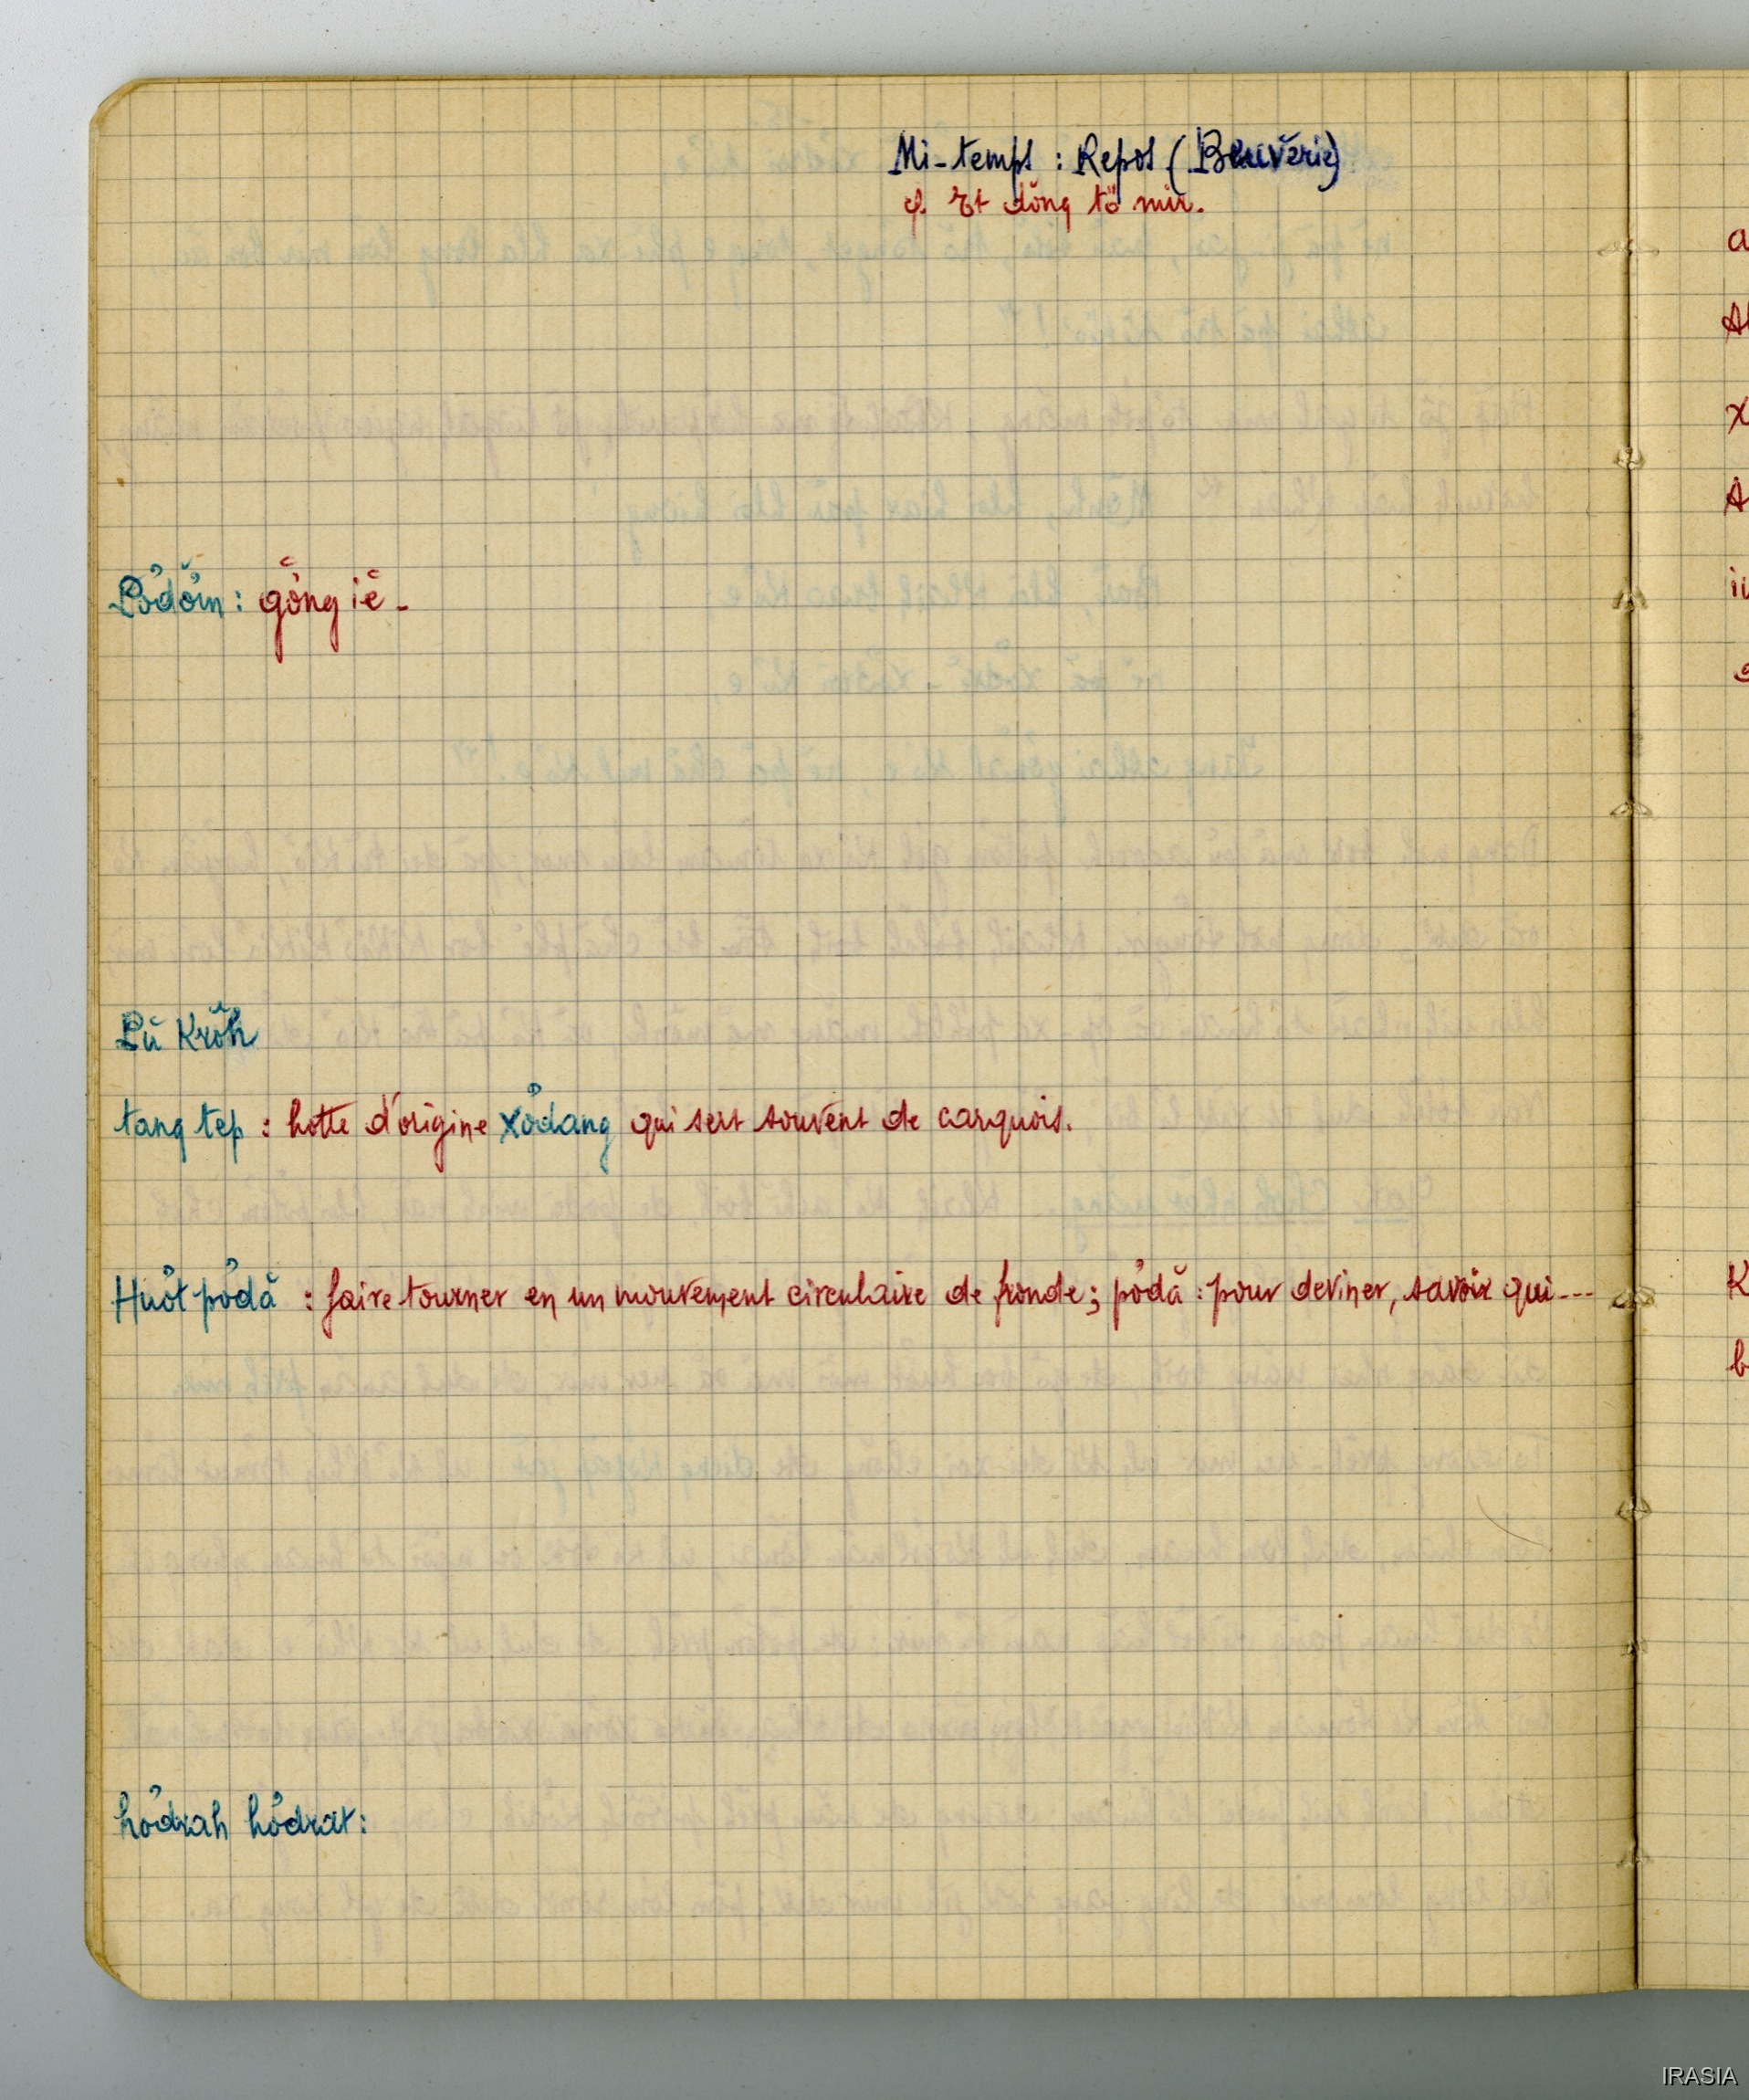 Mi-temps : Repos (Beuverie)
cf. Et dŏng tŏ mir.
Pơdơ̆m : gơ̆ng iĕ -
Lŭ Krơ̆h
tang tep : hotte d'origine Xơ̆dang qui sert souvent de carquois.
Huơ̆t pơ̆dă : faire tourner en un mouvement circulaire de fronde ; pơ̆dă : pour deviner, savoir qui ---
hơ̆drah hơ̆drat :
IRASIA